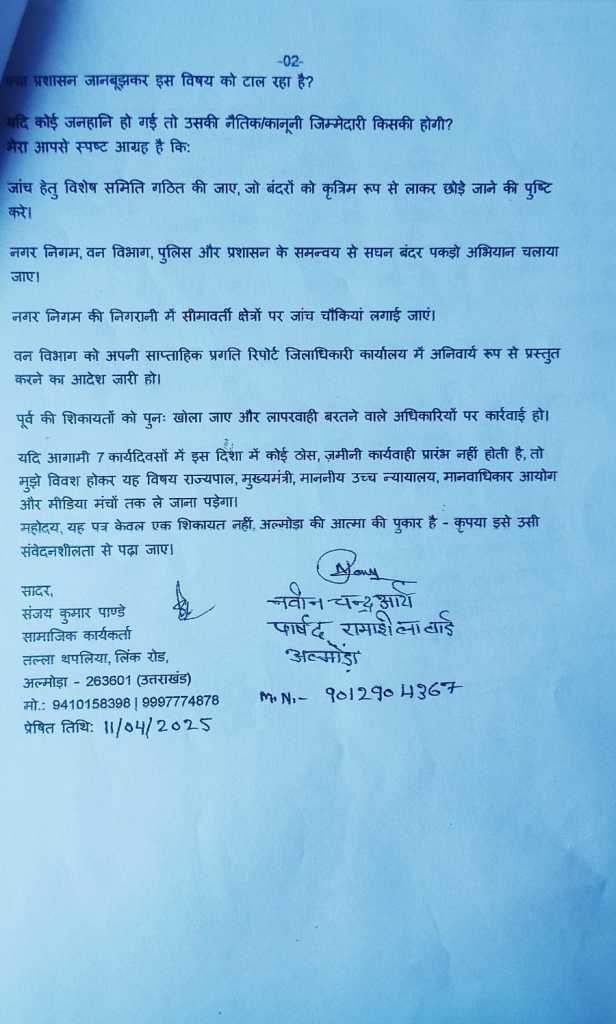 -02-
क्या प्रशासन जानबूझकर इस विषय को टाल रहा है?
यदि कोई जनहानि हो गई तो उसकी नैतिक/कानूनी जिम्मेदारी किसकी होगी?
मेरा आपसे स्पष्ट आग्रह है कि:
जांच हेतु विशेष समिति गठित की जाए, जो बंदरों को कृत्रिम रूप से लाकर छोड़े जाने की पुष्टि
करे।
नगर निगम, वन विभाग, पुलिस और प्रशासन के समन्वय से सघन बंदर पकड़ो अभियान चलाया
जाए।
नगर निगम की निगरानी में सीमावर्ती क्षेत्रों पर जांच चौकियां लगाई जाएं।
वन विभाग को अपनी साप्ताहिक प्रगति रिपोर्ट जिलाधिकारी कार्यालय में अनिवार्य रूप से प्रस्तुत
करने का आदेश जारी हो।
पूर्व की शिकायतों को पुनः खोला जाए और लापरवाही बरतने वाले अधिकारियों पर कार्रवाई हो।
यदि आगामी 7 कार्यदिवसों में इस दिशा में कोई ठोस, ज़मीनी कार्यवाही प्रारंभ नहीं होती है, तो
मुझे विवश होकर यह विषय राज्यपाल, मुख्यमंत्री, माननीय उच्च न्यायालय, मानवाधिकार आयोग
और मीडिया मंचों तक ले जाना पड़ेगा।
महोदय, यह पत्र केवल एक शिकायत नहीं, अल्मोड़ा की आत्मा की पुकार है - कृपया इसे उसी
संवेदनशीलता से पढ़ा जाए।
सादर,
संजय कुमार पाण्डे
सामाजिक कार्यकर्ता
तल्ला थपलिया, लिंक रोड,
अल्मोड़ा - 263601 (उत्तराखंड)
मो.: 9410158398 | 9997774878
प्रेषित तिथि: 11/04/2025
नवीन चन्द्र आर्य
पार्षद रामशिला वार्ड
अल्मोड़ा
M.N.- 9012904367